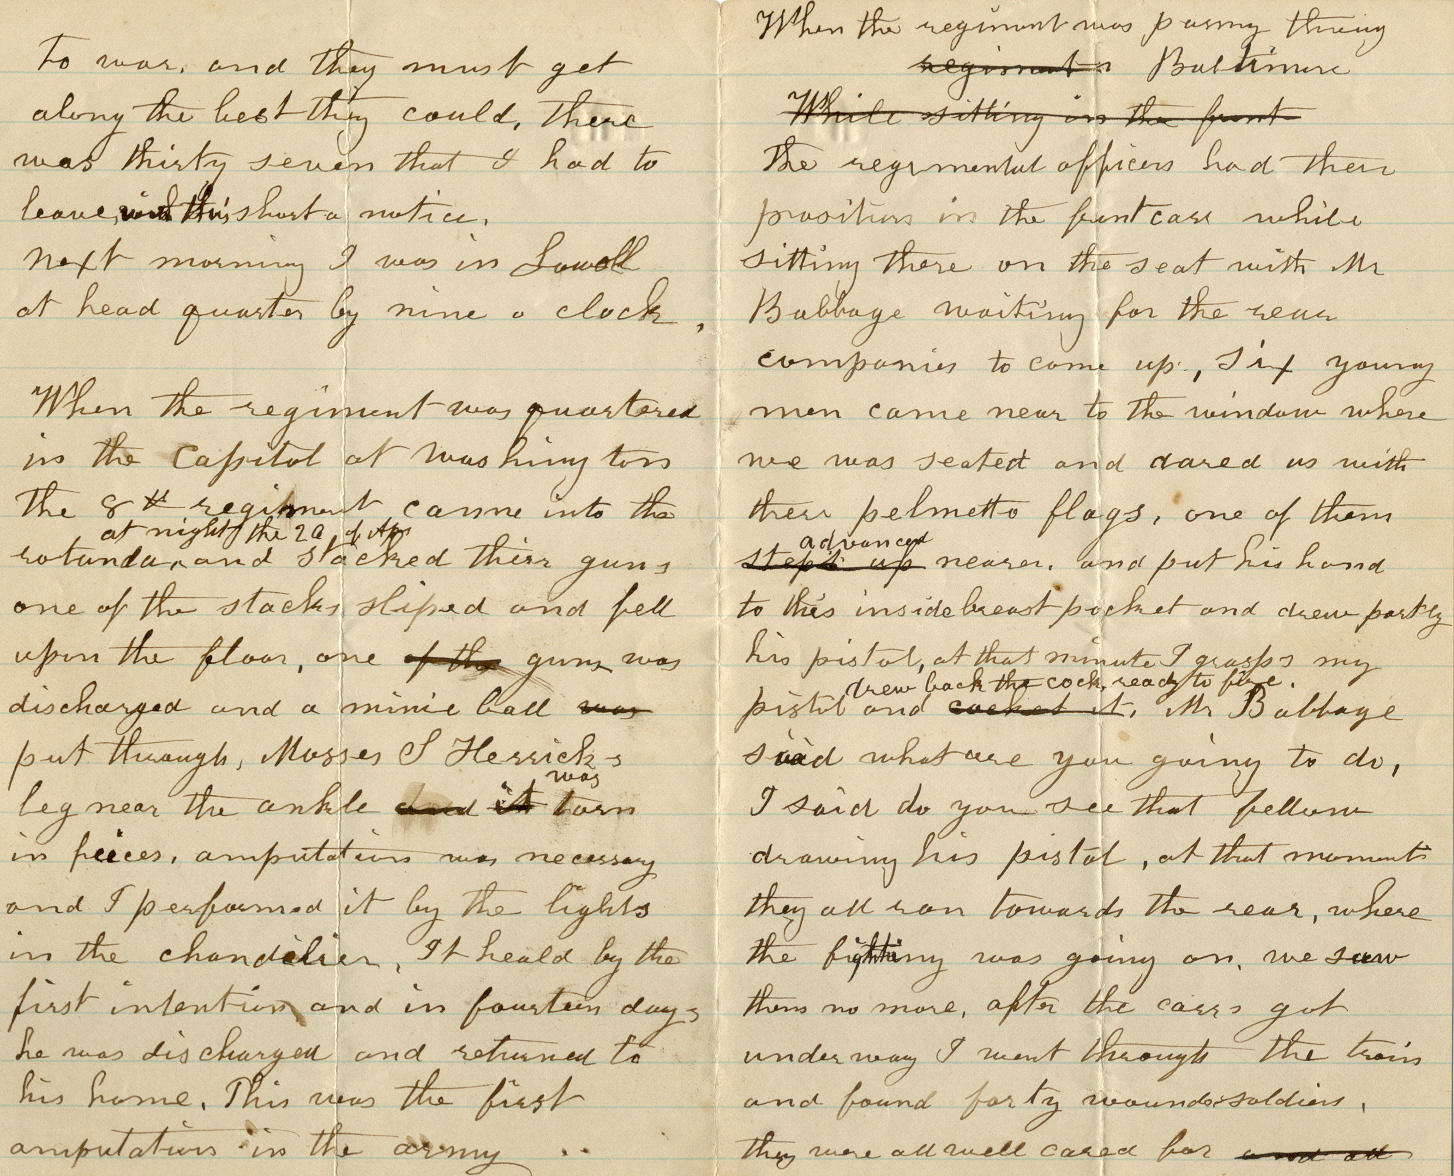 to war. and they must get
along the best they could, there
was thirty seven that I had to
leave, with this short a notice.
Next morning I was in Lowell
at head quarter by nine o clock,
When the regiment was quartered
in the Capitol at Washington
the 8th regiment came into the
at night the 20 of Apr
rotunda, and stacked thier guns
one of the stacks sliped and fell
upon the floor, one of the guns was
discharged and a minie ball was
put through, Mosses S Herrick s
was
leg near the ankle and it torn
in peices, amputation was necessary
and I performed it by the lights
in the chandelier, It heald by the
first intention and in fourteen days
he was discharged and returned to
his home. This was the first
amputation in the army ..
When the regiment was passing through
regiment Baltimore
While sitting in the front
The regimental officers had their
position in the front cars while
sitting there on the seat with Mr
Babbage waiting for the rear
companies to come up, Six young
men came near to the window where
we was seated and dared us with
their pelmetto flags, one of them
advanced
stept up nearer, and put his hand
to this inside breast pocket and drew partly
his pistol, at that minute I grasps my
drew back the cock, ready to fire.
pistol and cocket it. Mr Babbage
said what are you going to do,
I said do you see that fellow
drawing his pistol, at that moment
they all ran towards the rear, where
the fighting was going on, we saw
them no more, after the cars got
underway I went through the train
and found forty wounded soldiers,
they were all well cared for and all